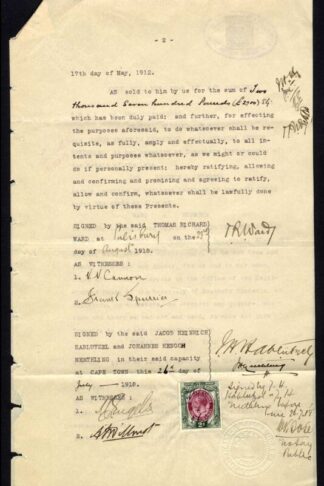 - 2 -
17th day of May, 1912.
AS sold to him by us for the sum of Two
thousand Seven hundred Pounds (£2700) Stg.
which has been duly paid; and further, for effecting
the purposes aforesaid, to do whatsoever shall be re-
quisite, as fully, amply and effectually, to all in-
tents and purposes whatsoever, as we might or could
do if personally present; hereby ratifying, allowing
and confirming and promising and agreeing to ratify,
allow and confirm, whatsoever shall be lawfully done
by virtue of these Presents.
SIGNED by the said THOMAS RICHARD
WARD at Salisbury on the 23rd
day of August 1918.
T.R. Ward
AS WITNESSES :
1.
2.
SIGNED by the said JACOB HEINRICH
HABLUTZEL and JOHANNES HENOCH
NEETHLING in their said capacity
at CAPE TOWN this 26th day of
July 1918.
J H Hablutzel
AS WITNESSES :
1.
2.
Signed by J. H.
Hablutzel & J H
Neethling before
me
Notary
Public